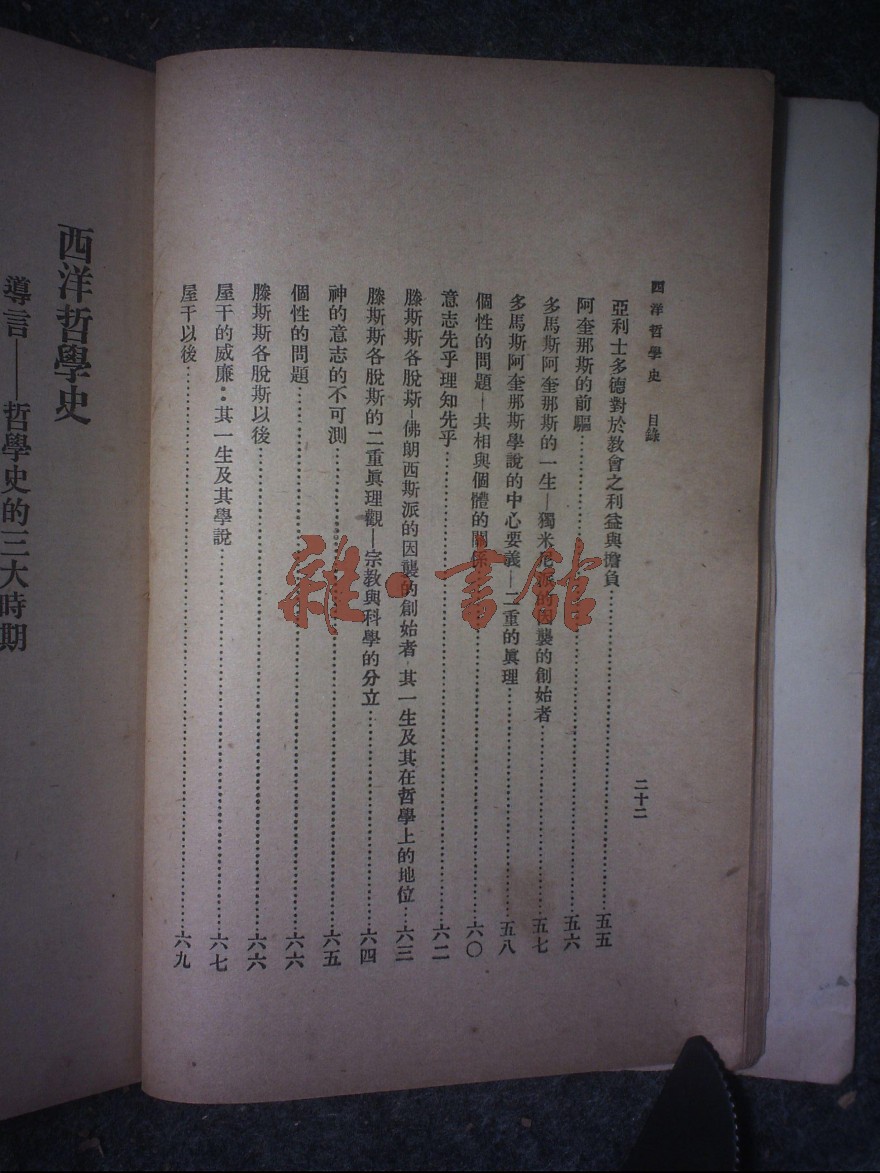 西洋哲學史　目錄　二十二
亞利士多德對於教會之利益與擔負……五五
阿奎那斯的前驅……五六
多馬斯阿奎那斯的一生—獨米尼派的因襲的創始者……五七
多馬斯阿奎那斯學說的中心要義—二重的眞理……五八
個性的問題—共相與個體的關係……六〇
意志先乎理知先乎……六二
滕斯斯各脫斯—佛朗西斯派的因襲的創始者，其一生及其在哲學上的地位…六三
滕斯斯各脫斯的二重眞理觀—宗教與科學的分立……六四
神的意志的不可測……六五
個性的問題……六六
滕斯斯各脫斯以後……六六
屋干的威廉：其一生及其學說……六七
屋干以後……六九
西洋哲學史
導言——哲學史的三大時期
雜·書館